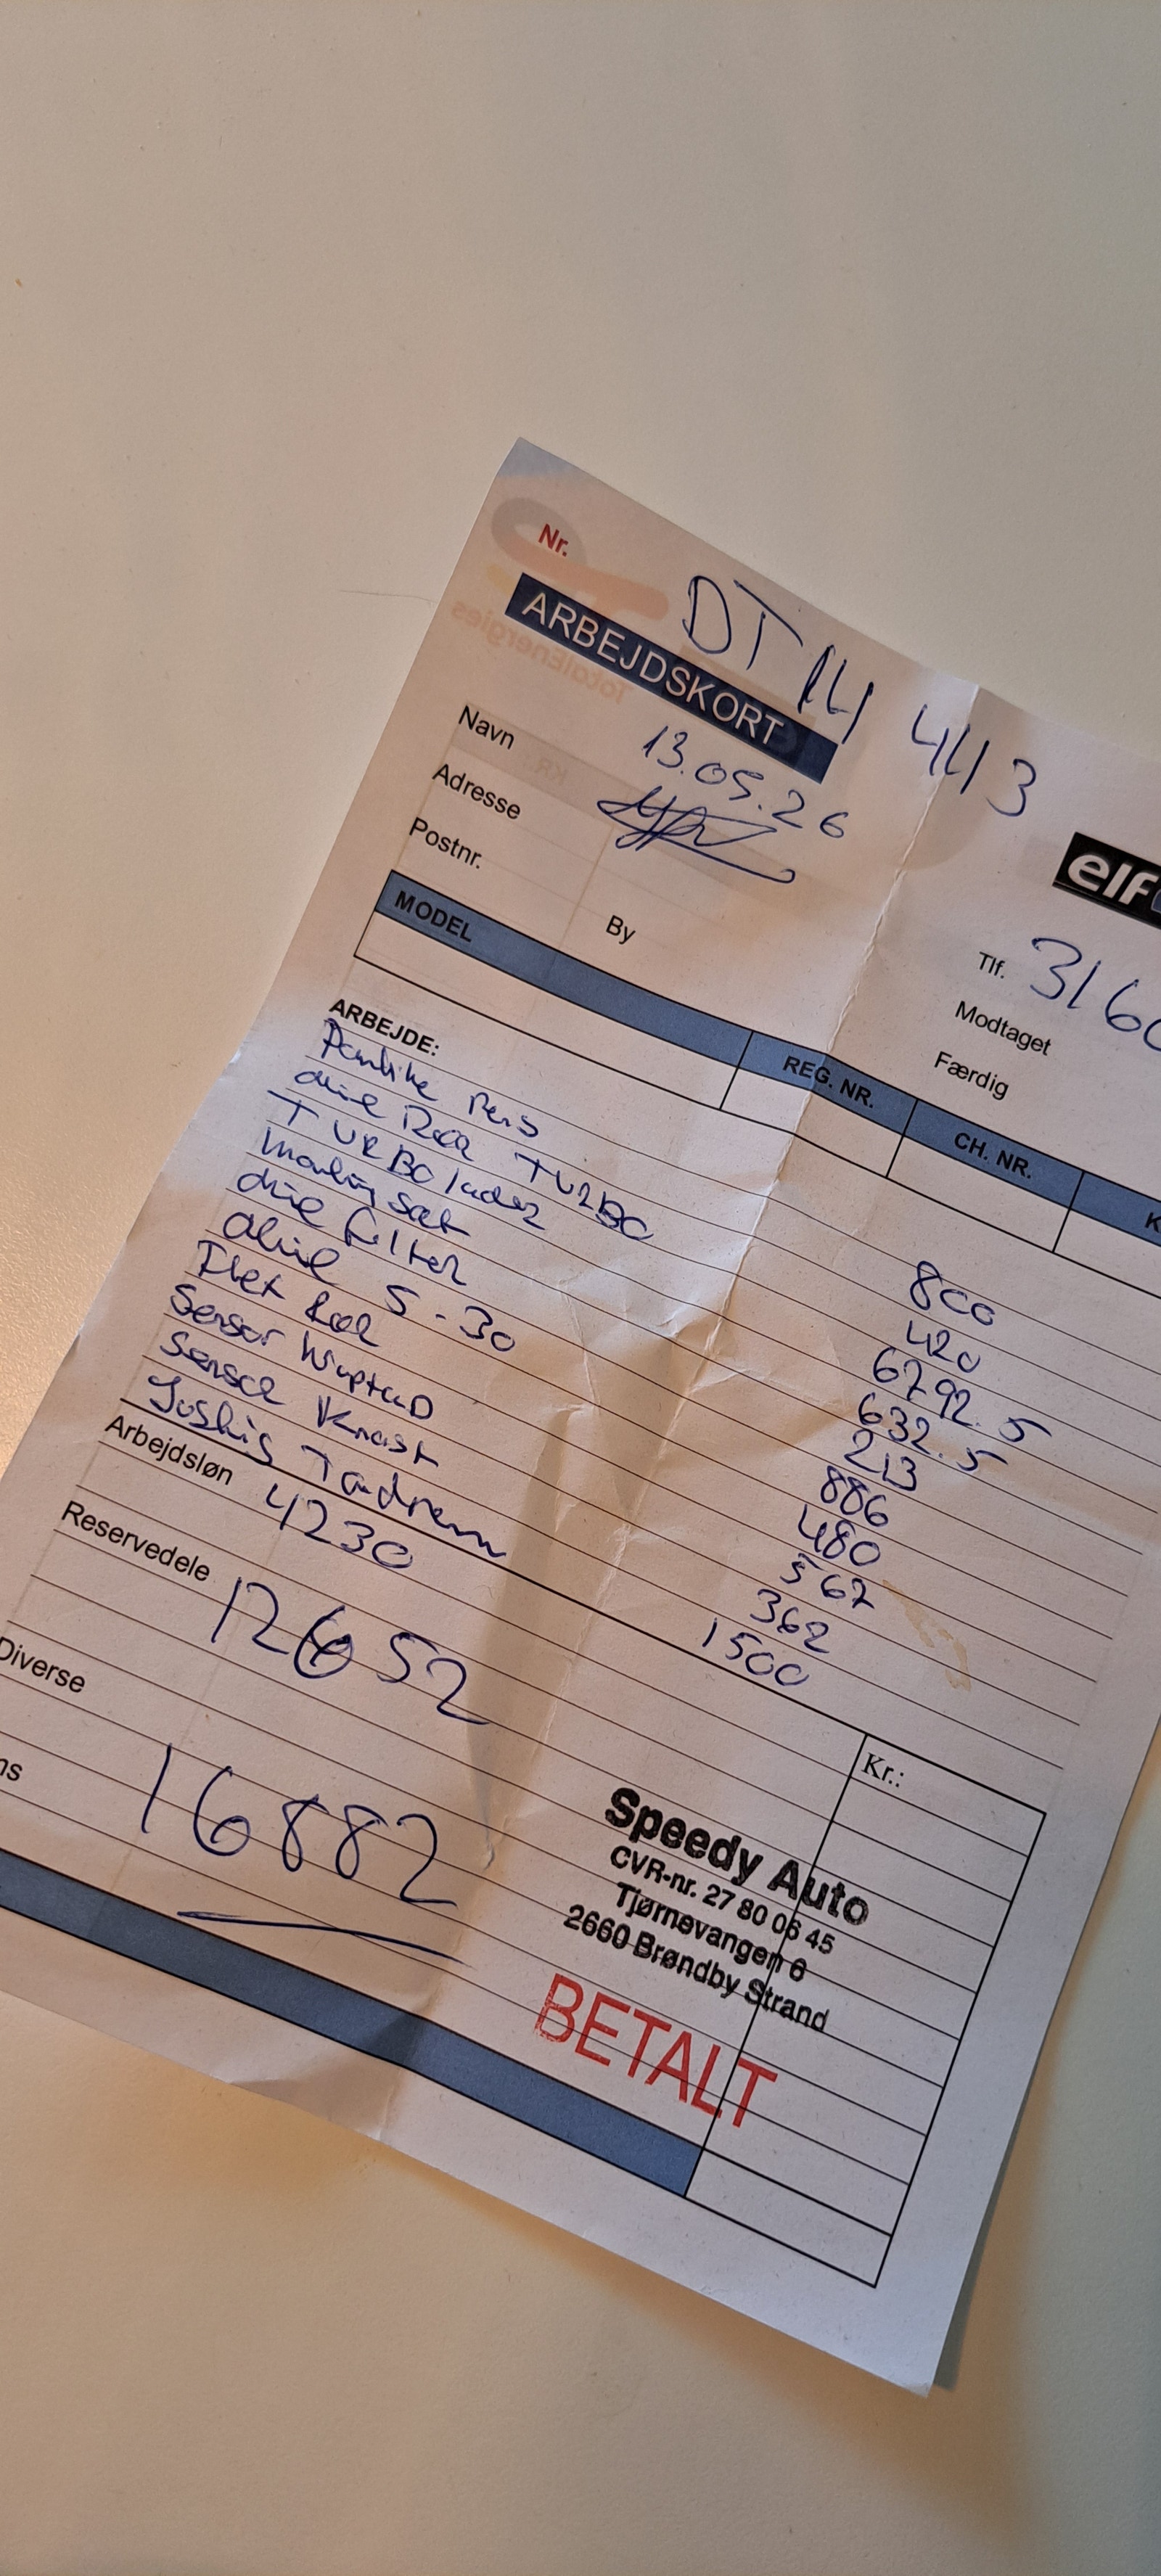 Nr.
DT 14 443
ARBEJDSKORT
TotalEnergies
elf
Navn
13.05.26
Adresse
Postnr.
By
Tlf. 3160
Modtaget
Færdig
MODEL REG. NR. CH. NR. K
ARBEJDE:
Rens 800
olie Rør TURBO 420
TURBO lader 6792.5
monteringsæt 632.5
olie filter 213
olie 5-30 886
Flex Rør 480
Sensor 567
Sensor Knast 362
Tandrem 1500
Arbejdsløn 4230
Reservedele 12652
Diverse
ns
16882
Kr.:
Speedy Auto
CVR-nr. 27 80 06 45
Tjørnevangen 6
2660 Brøndby Strand
BETALT